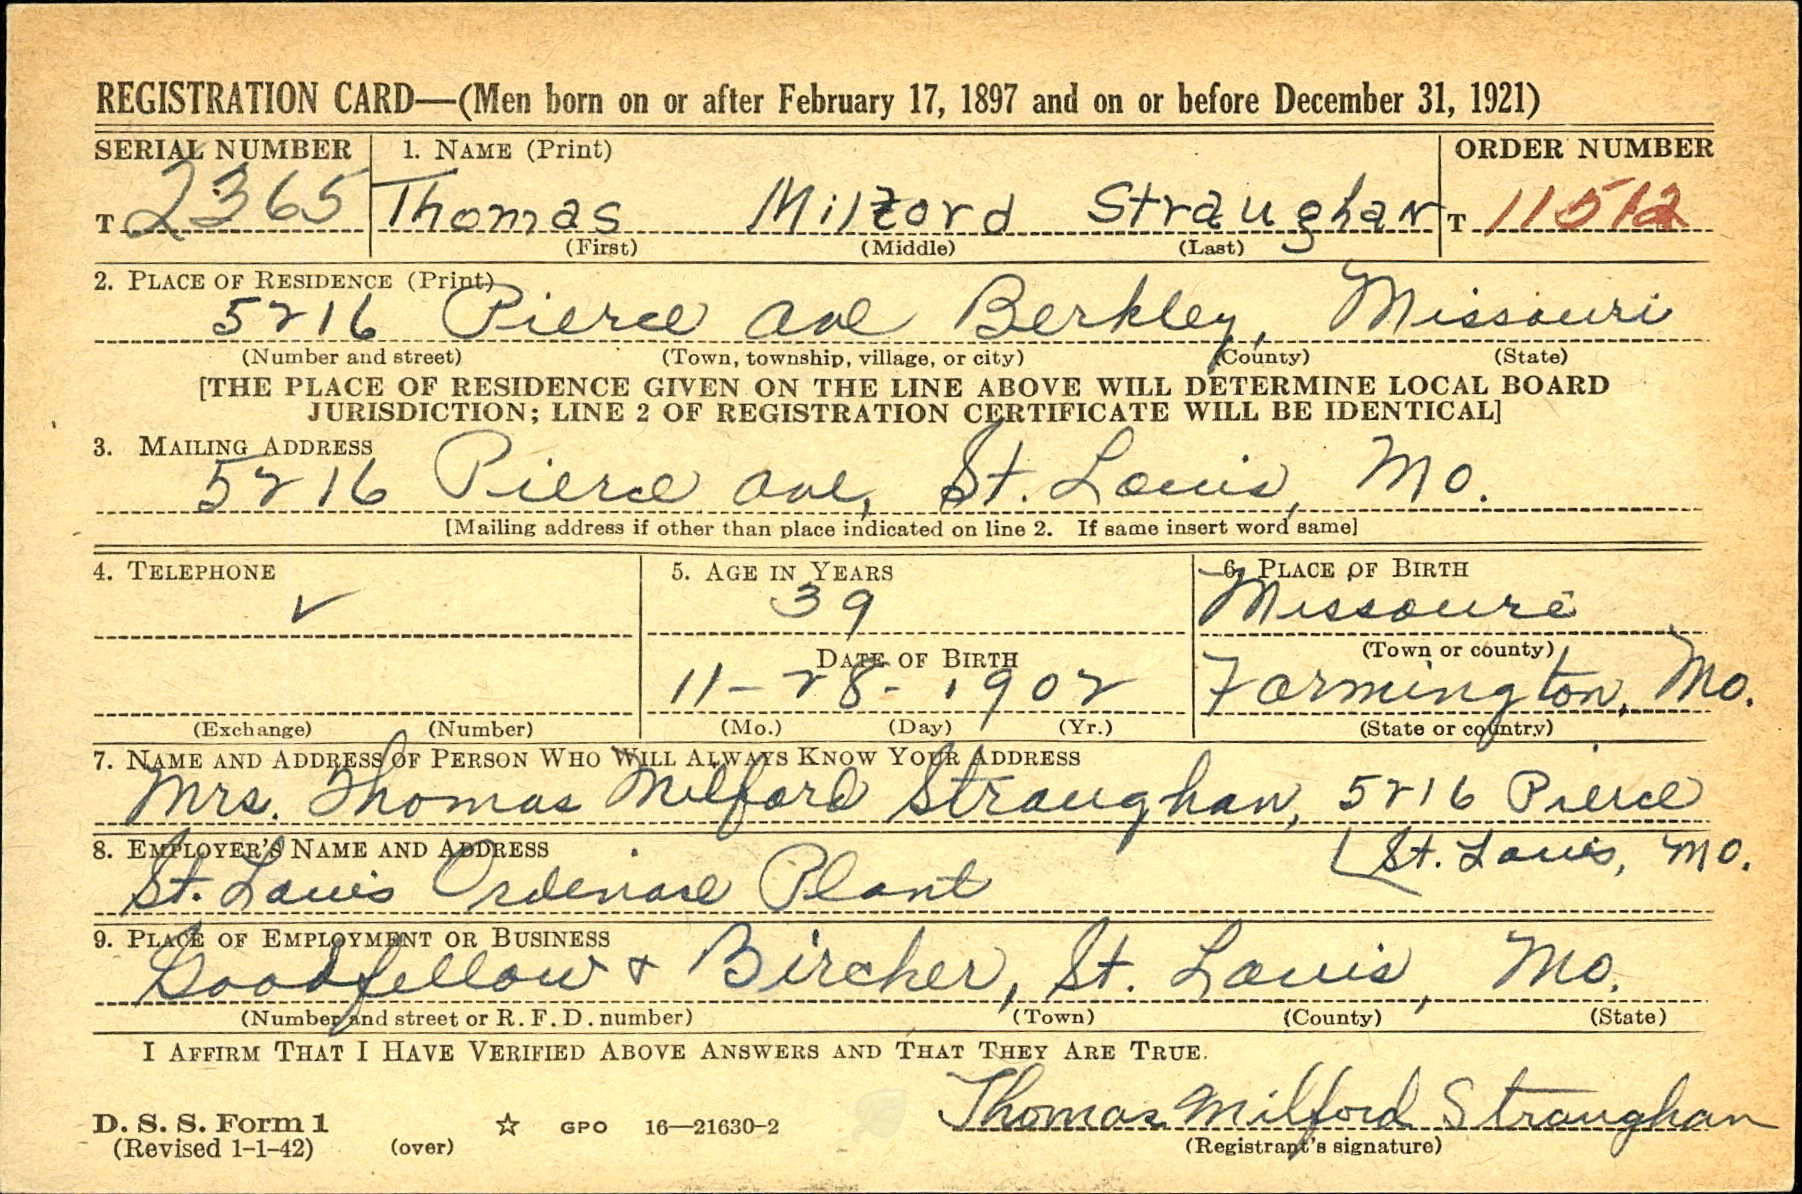 REGISTRATION CARD—(Men born on or after February 17, 1897 and on or before December 31, 1921)
SERIAL NUMBER 1. NAME (Print) ORDER NUMBER
T 2365 Thomas Milford Straughan T 11512
(First) (Middle) (Last)
2. PLACE OF RESIDENCE (Print)
5216 Pierce Ave Berkley, Missouri
(Number and street) (Town, township, village, or city) (County) (State)
[THE PLACE OF RESIDENCE GIVEN ON THE LINE ABOVE WILL DETERMINE LOCAL BOARD
JURISDICTION; LINE 2 OF REGISTRATION CERTIFICATE WILL BE IDENTICAL]
3. MAILING ADDRESS
5216 Pierce Ave, St. Louis, Mo.
[Mailing address if other than place indicated on line 2. If same insert word same]
4. TELEPHONE 5. AGE IN YEARS 6. PLACE OF BIRTH
✓ 39 Missouri
DATE OF BIRTH (Town or county)
11-28-1902 Farmington, Mo.
(Exchange) (Number) (Mo.) (Day) (Yr.) (State or country)
7. NAME AND ADDRESS OF PERSON WHO WILL ALWAYS KNOW YOUR ADDRESS
Mrs. Thomas Milford Straughan, 5216 Pierce
8. EMPLOYER'S NAME AND ADDRESS St. Louis, Mo.
St. Louis Ordinace Plant
9. PLACE OF EMPLOYMENT OR BUSINESS
Goodfellow + Bircher, St. Louis, Mo.
(Number and street or R. F. D. number) (Town) (County) (State)
I AFFIRM THAT I HAVE VERIFIED ABOVE ANSWERS AND THAT THEY ARE TRUE.
Thomas Milford Straughan
D. S. S. Form 1 ☆ GPO 16—21630-2
(Revised 1-1-42) (over) (Registrant's signature)